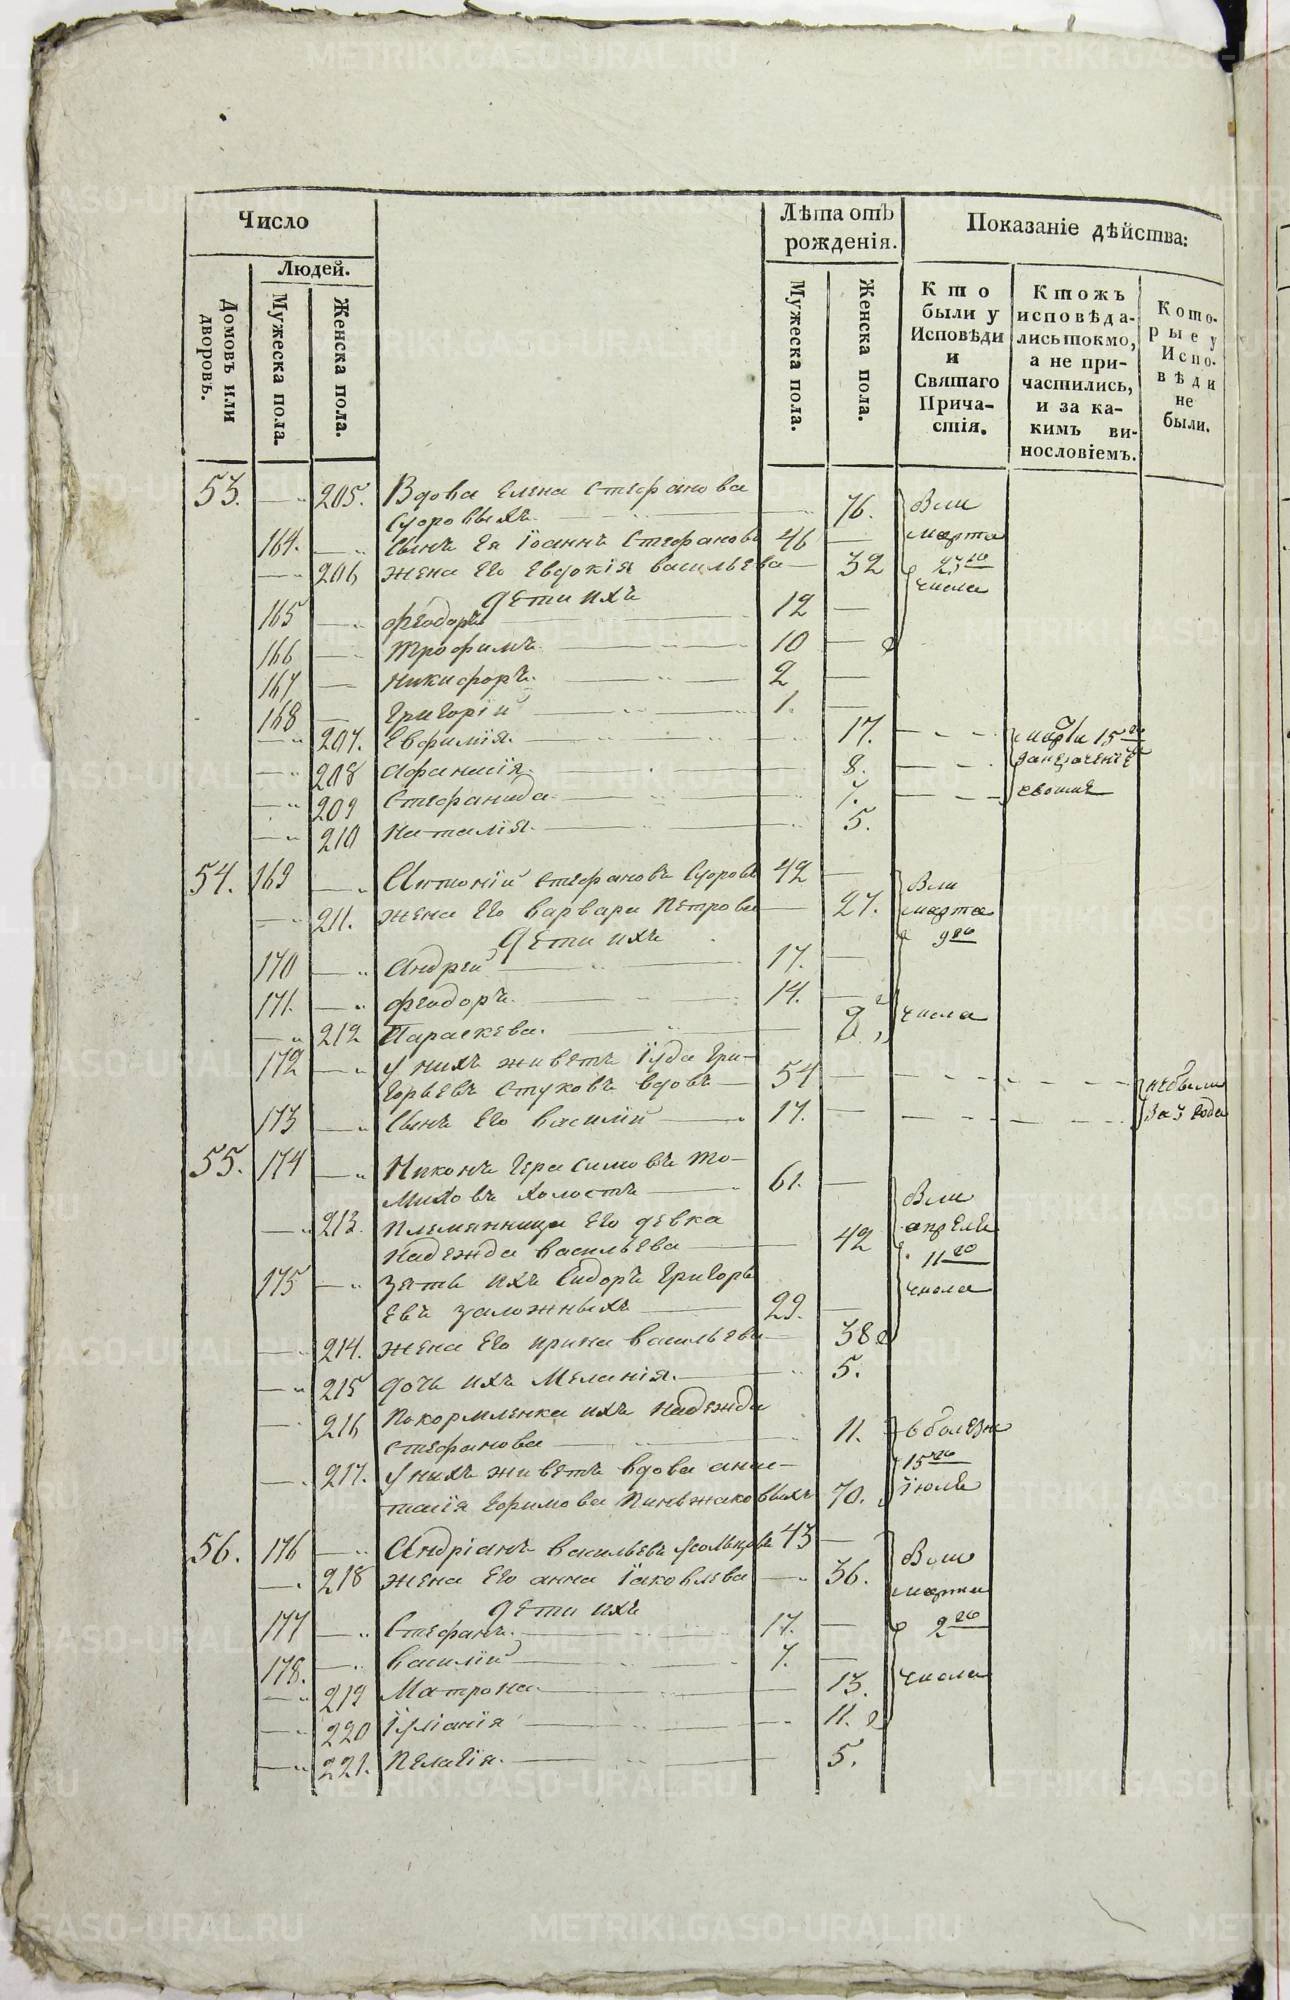 Число
Лѣта отъ рожденія.
Показаніе дѣйства:
Людей.
Домовъ или дворовъ.
Мужеска пола.
Женска пола.
Мужеска пола.
Женска пола.
Кто были у Исповѣди и Святаго Причастія.
Ктожъ исповѣдались токмо, а не причастились, и за какимъ винословіемъ.
Которые у Исповѣди не были.
53. 205. Вдова Елена Стефанова
Суровыхъ. 76. Вси
164. Сынъ Ея Іоаннъ Стефановъ 46 марта
206 жена Его Евдокія васильева 32 23го
дети ихъ числа
165 Феодоръ 12
166 Трофимъ 10
167 Никифоръ. 2
168 Григорій 1.
207. Евфимія. 17. марта 15го
208 Афанасія. 8.
209 Стефанида 7.
210 Наталія. 5.
54. 169 Антоній стефановъ Суровъ 42 Вси
211. жена Его варвара Петрова 27. марта
дети ихъ 9го
170 Андрей 17.
171. Феодоръ. 14.
212 Параскева. 8 числа
172 у нихъ живетъ Іуда Гри-
горьевъ Стуковъ вдовъ 54 небыли
173 Сынъ Его василій 17. за 3 года
55. 174 Никонъ Герасимовъ То-
миловъ холостъ 61. Вси
213. племянница Его девка апреля
Надежда васильева 42 11го
175 Зять ихъ Сидоръ Григорь
евъ заложныхъ 29. числа
214. жена Его ирина васильева 38
215 дочь ихъ Меланія. 5.
216 Покормленка ихъ Надежда
стефанова 11.
217. у нихъ живетъ вдова анас- 15го
тасія Ефимова Пиньжаковыхъ 70. Іюля
56. 176 Андріанъ васильевъ усольцовъ 43 Вси
218 жена Его анна Іаковлева 36. марта
дети ихъ 2го
177 Стефанъ. 17.
178. василій 7. числа
219 Матрона 13.
220 Іуліанія 11.
221. Пелагія. 5.
METRIKI.GASO-URAL.RU